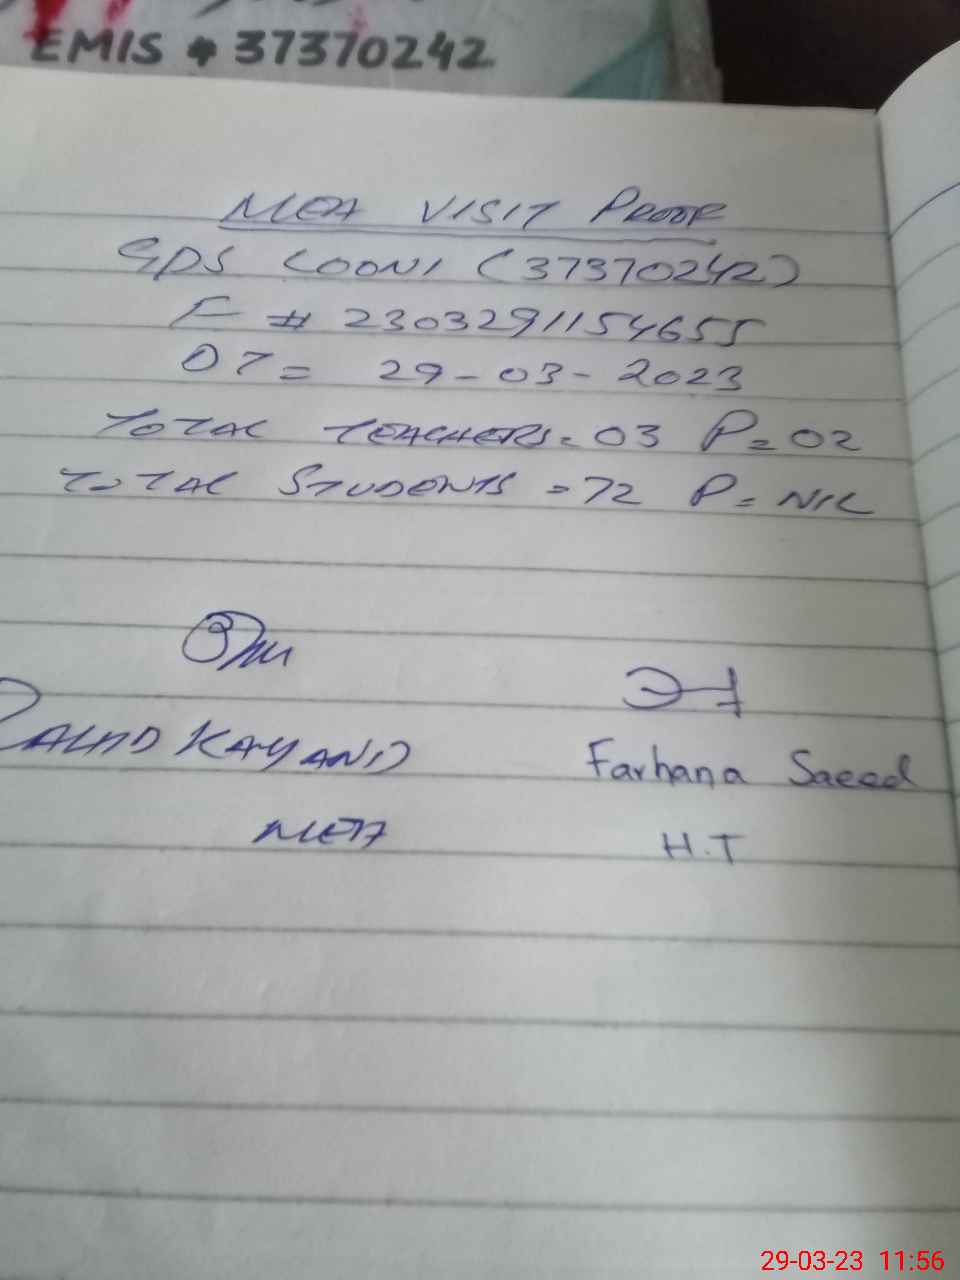 EMIS # 37370242
MEA VISIT PROOF
GPS LOONI (37370242)
F # 2303291154655
DT = 29-03-2023
TOTAL TEACHERS = 03 P = 02
TOTAL STUDENTS = 72 P = NIL
KAYANI
Farhana Saeed
MEA
H.T
29-03-23 11:56